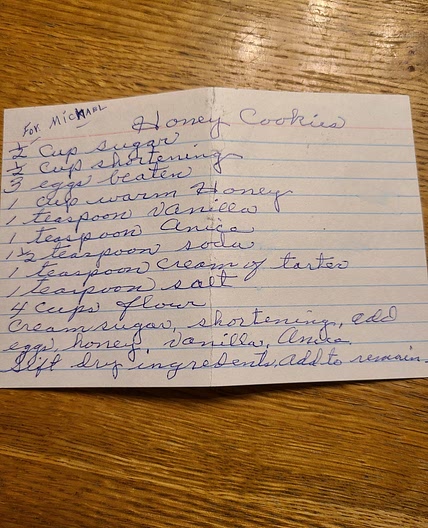 For: Michael
Honey Cookies
½ cup sugar
½ cup shortening
3 eggs beaten
1 cup warm Honey
1 teaspoon Vanilla
1 teaspoon Anica
1½ teaspoon soda
1 teaspoon cream of tarter
1 teaspoon salt
4 cups flour
Cream sugar, shortening, add
eggs honey, vanilla, Anica.
Sift dry ingredients, add to remain.